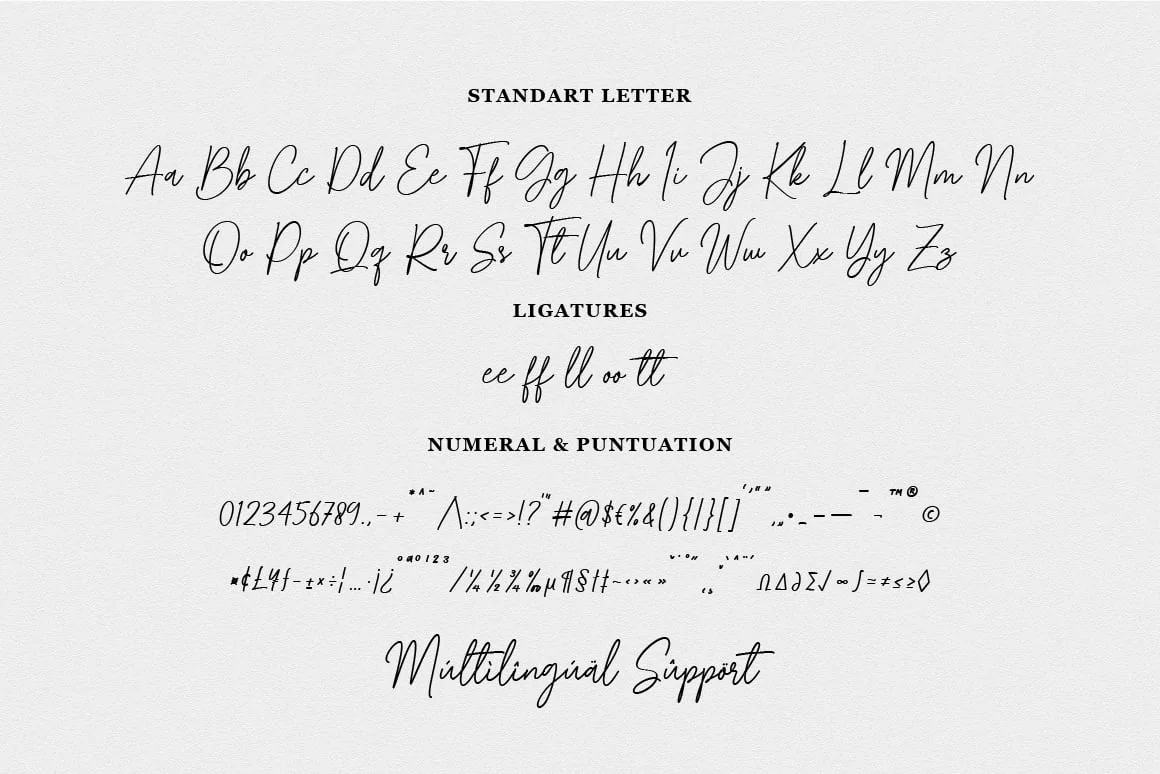 STANDART LETTER
Aa Bb Cc Dd Ee Ff Gg Hh Ii Jj Kk Ll Mm Nn
Oo Pp Qq Rr Ss Tt Uu Vv Ww Xx Yy Zz
LIGATURES
ee ff ll oo tt
NUMERAL & PUNTUATION
0123456789.,-+*^~/\:;<=>!?'"#@$€%&(){|}[]‘’“”‚„•_–—¯¬™®©
¤¢£¥ƒ-±×÷¦…·¡¿ºª0123/¼½¾‰µ¶§†‡~‹›«»˘˙°˝¸ˇ`^¨´Ω∆∂∑√∞∫≈≠≤≥◊
Múltìlîngúäl Sûppört